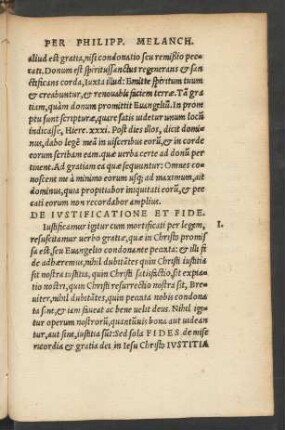 PER PHILIPP. MELANCH.
aliud est gratia, nisi condonatio seu remissio pec
cati. Donum est spiritussanctus regenerans & san
ctificans corda, iuxta illud: Emitte spiritum tuum
& creabuntur, & renovabis faciem terræ. Tā gra
tiam, quàm donum promittit Euangeliū. In prom
ptu sunt scripturæ, quare satis uidetur unum locū
indicasse, Hiere. xxxi. Post dies illos, dicit domi
nus, dabo legē meā in uisceribus eorū, & in corde
eorum scribam eam. quæ uerba certe ad donū per
tinent. Ad gratiam ea quæ sequuntur: Omnes co
gnoscent me à minimo eorum usq; ad maximum, ait
dominus, quia propitiabor iniquitati eorū, & pec
cati eorum non recordabor amplius.
DE IVSTIFICATIONE ET FIDE.
Iustificamur igitur cum mortificati per legem, I.
resuscitamur uerbo gratiæ, quæ in Christo promis
sa est, seu Euangelio condonante peccata: & illi fi
de adheremus, nihil dubitātes quin Christi iustitia
sit nostra iustitia, quin Christi satisfactio, sit expia
tio nostri, quin Christi resurrectio nostra sit, Bre
uiter, nihil dubitātes, quin peccata nobis condona
ta sint, & iam faueat ac bene uelit deus. Nihil igi
tur operum nostrorū, quantūuis bona aut uidean
tur, aut sint, iustitia sūt: Sed sola FIDES de mise
ricordia & gratia dei in Iesu Christo IVSTITIA